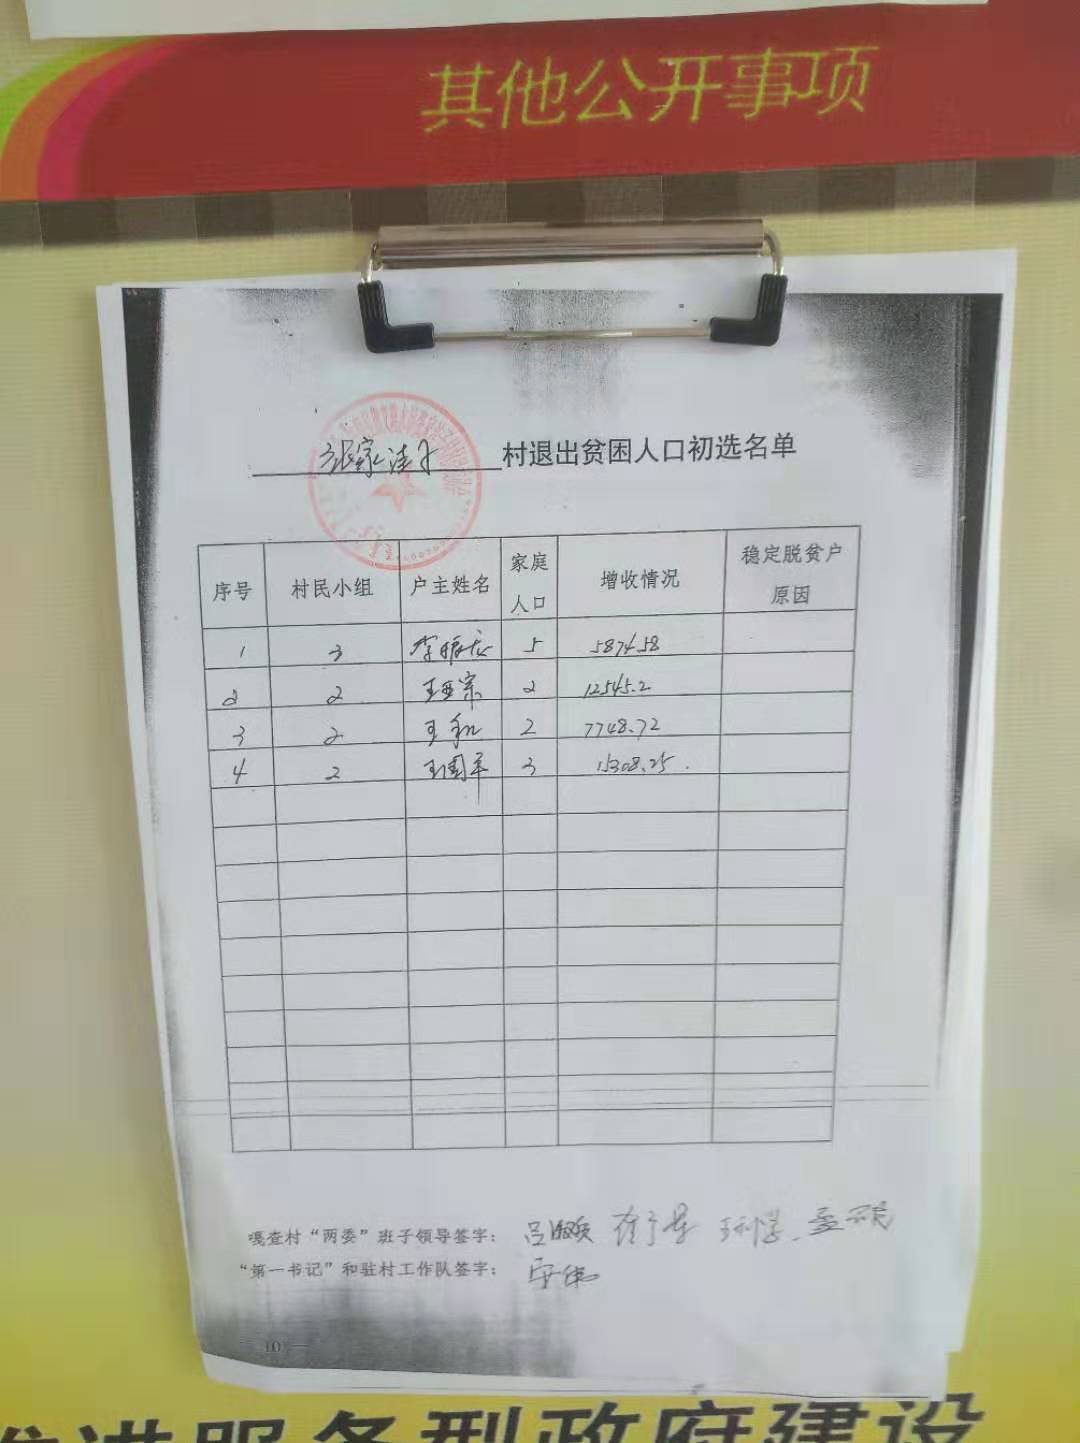 其他公开事项
张家洼子 村退出贫困人口初选名单
序号 村民小组 户主姓名 家庭人口 增收情况 稳定脱贫户原因
1 3 李振龙 5 5874.58
2 2 王亚宗 2 12545.2
3 2 王和 2 7748.72
4 2 王国军 3 15308.25
嘎查村“两委”班子领导签字：
“第一书记”和驻村工作队签字：
10
推进服务型政府建设